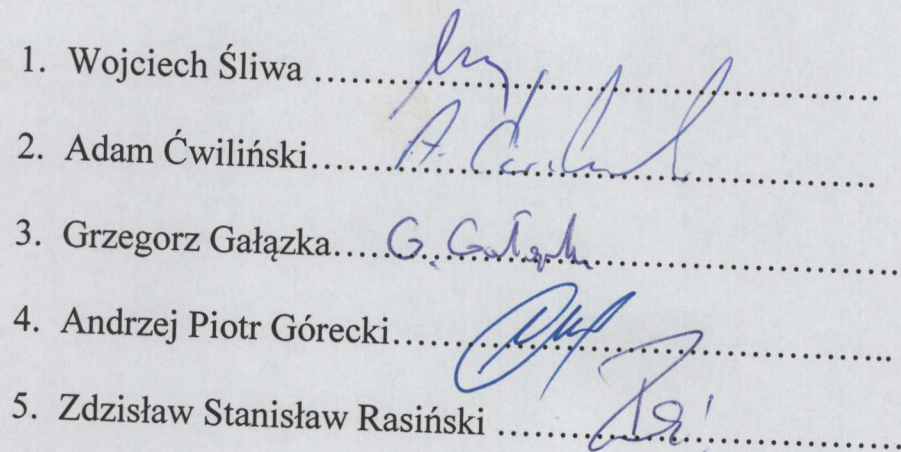 1. Wojciech Śliwa ……………………………………
2. Adam Ćwiliński……………………………………
3. Grzegorz Gałązka…. G. Gałązka
4. Andrzej Piotr Górecki……………………………
5. Zdzisław Stanisław Rasiński ……………………